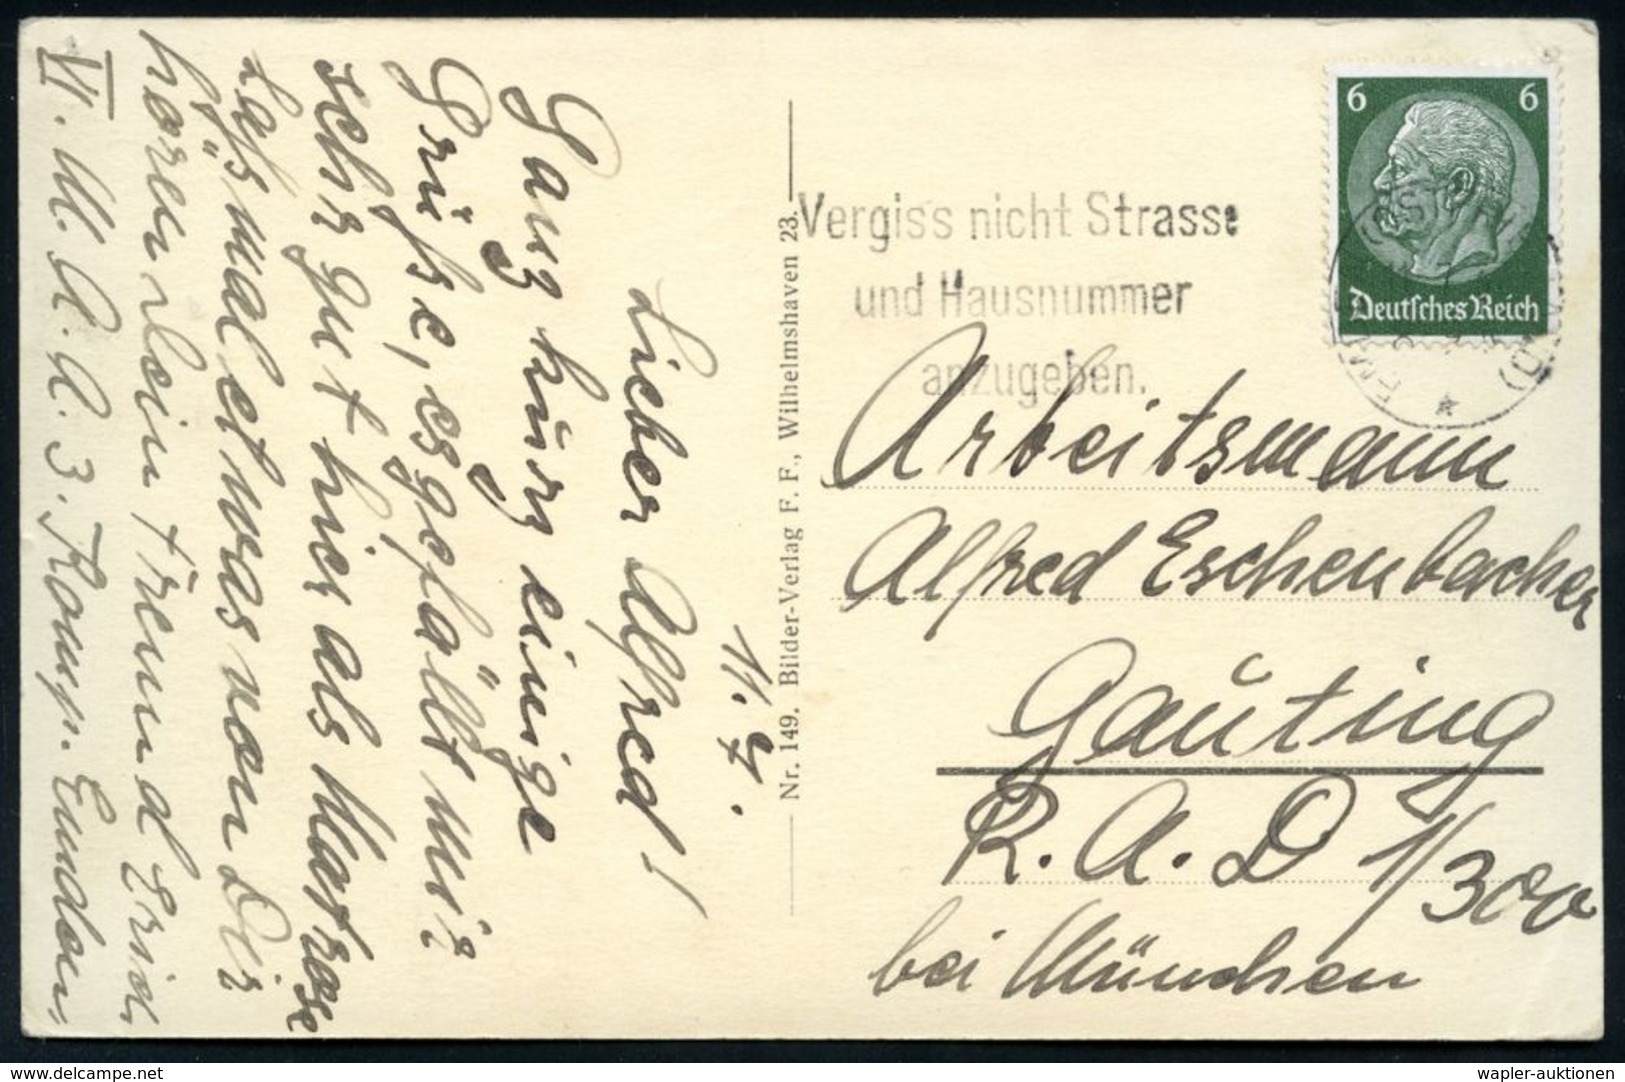 11. 4.
Lieber Alfred!
Ganz kurz einige
Grüße, es gefällt mir
sehr gut hier als Matrose
Laß mal etwas von Dir
hören Dein Freund Erich
VI. M. A. A. 3. Komp. Emden
Nr. 149. Bilder-Verlag F. F., Wilhelmshaven 23.
Vergiss nicht Strasse
und Hausnummer
anzugeben.
6 6
Deutsches Reich
Arbeitsmann
Alfred Eschenbacher
Gauting
R. A. D 1/300
bei München
wapler-auktionen
www.delcampe.net